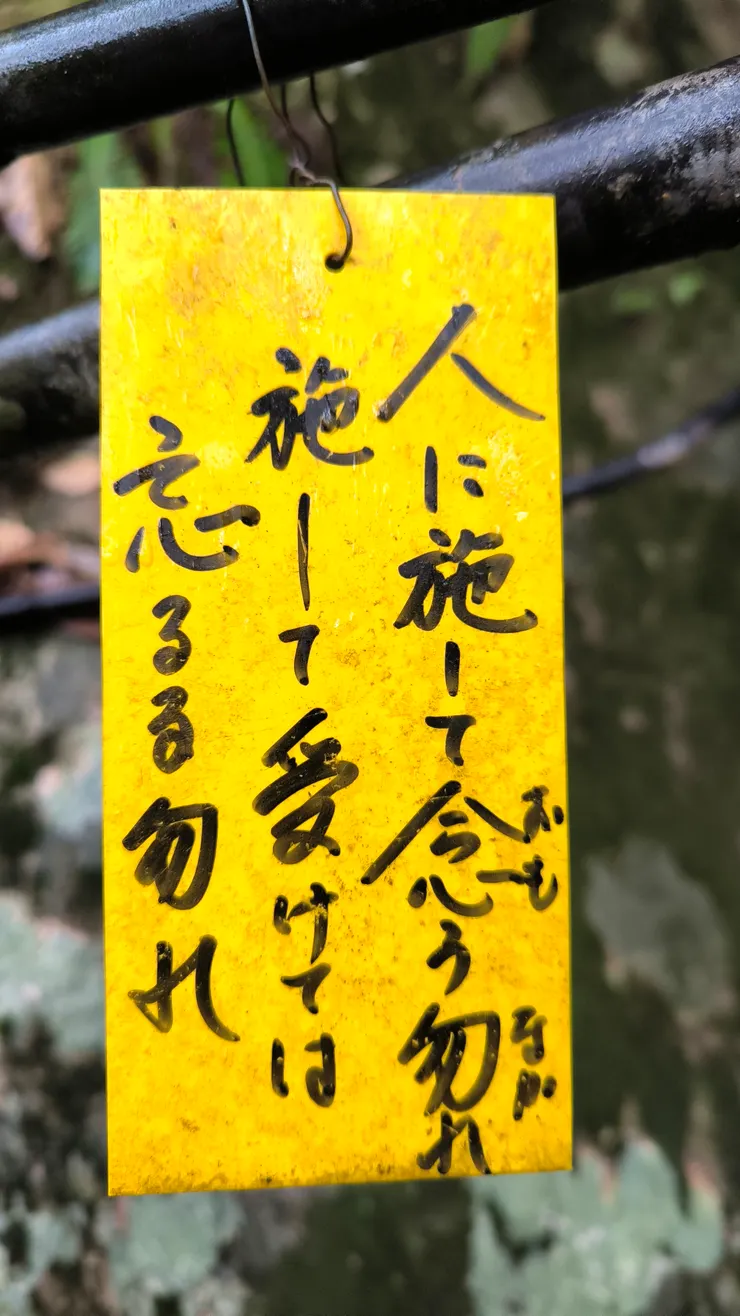 人に施して念う勿れ
おも
なか
施して受けては
忘るる勿れ